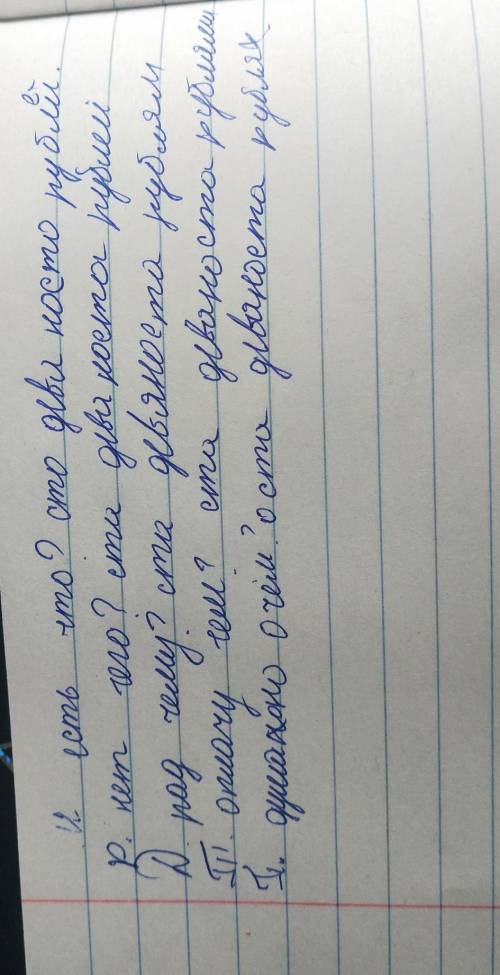 И. есть что? сто девяносто рублей.
Р. нет чего? ста девяноста рублей
Д. рад чему? ста девяноста рублям
Т. оплачу чем? ста девяноста рублями
П. думаю о чём? о ста девяноста рублях.